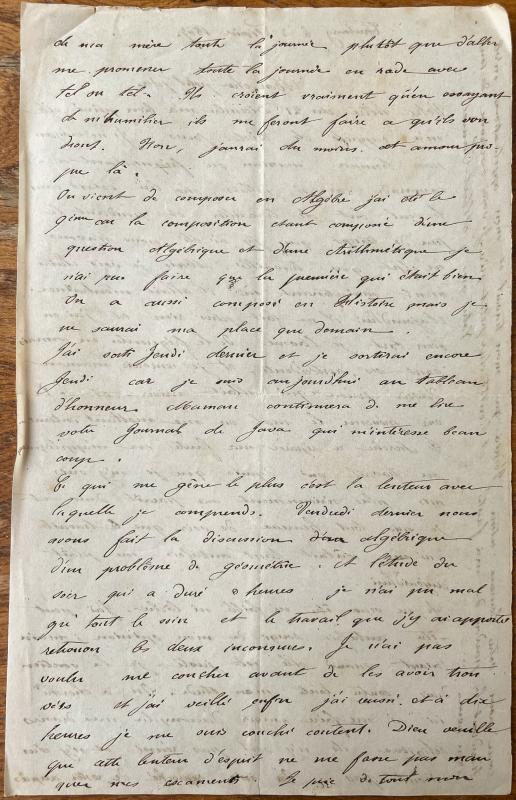 de ma mère toute la journée plutôt que d'aller
me promener toute la journée en rade avec
tel ou tel. Ils croient vraiment qu'en essayant
de m'humilier ils me feront faire ce qu'ils von
dront. Non, j'aurai du moins cet amour pro-
pre là.
On vient de composer en Algèbre j'ai été le
9ième car la composition étant composée d'une
question Algébrique et d'une Arithmétique je
n'ai pu faire que la première qui était bien
On a aussi composé en Histoire mais je
ne saurai ma place que demain.
J'ai sorti Jeudi dernier et je sortirai encore
Jeudi car je suis aujourd'hui au tableau
d'honneur Maman continuera de me lire
votre Journal de Java qui m'intéresse beau
coup.
Ce qui me gêne le plus c'est la lenteur avec
laquelle je comprends. Vendredi dernier nous
avons fait la discussion algébrique
d'un problème de géométrie. et l'étude du
soir qui a duré heures je n'ai pu mal
gré tout le soin et le travail que j'y ai apportés
retrouver les deux inconnues. Je n'ai pas
voulu me coucher avant de les avoir trou
vées et j'ai veillé enfin j'ai réussi et à dix
heures je me suis couché content. Dieu veuille
que cette lenteur d'esprit ne me fasse pas man
quer mes examens. Je prie de tout mon